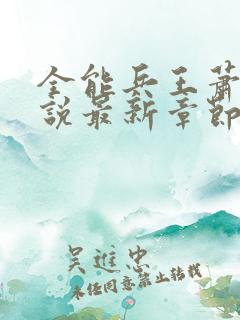 全能兵王蕭
說最新章節
吴進忠
未经同意禁止转载